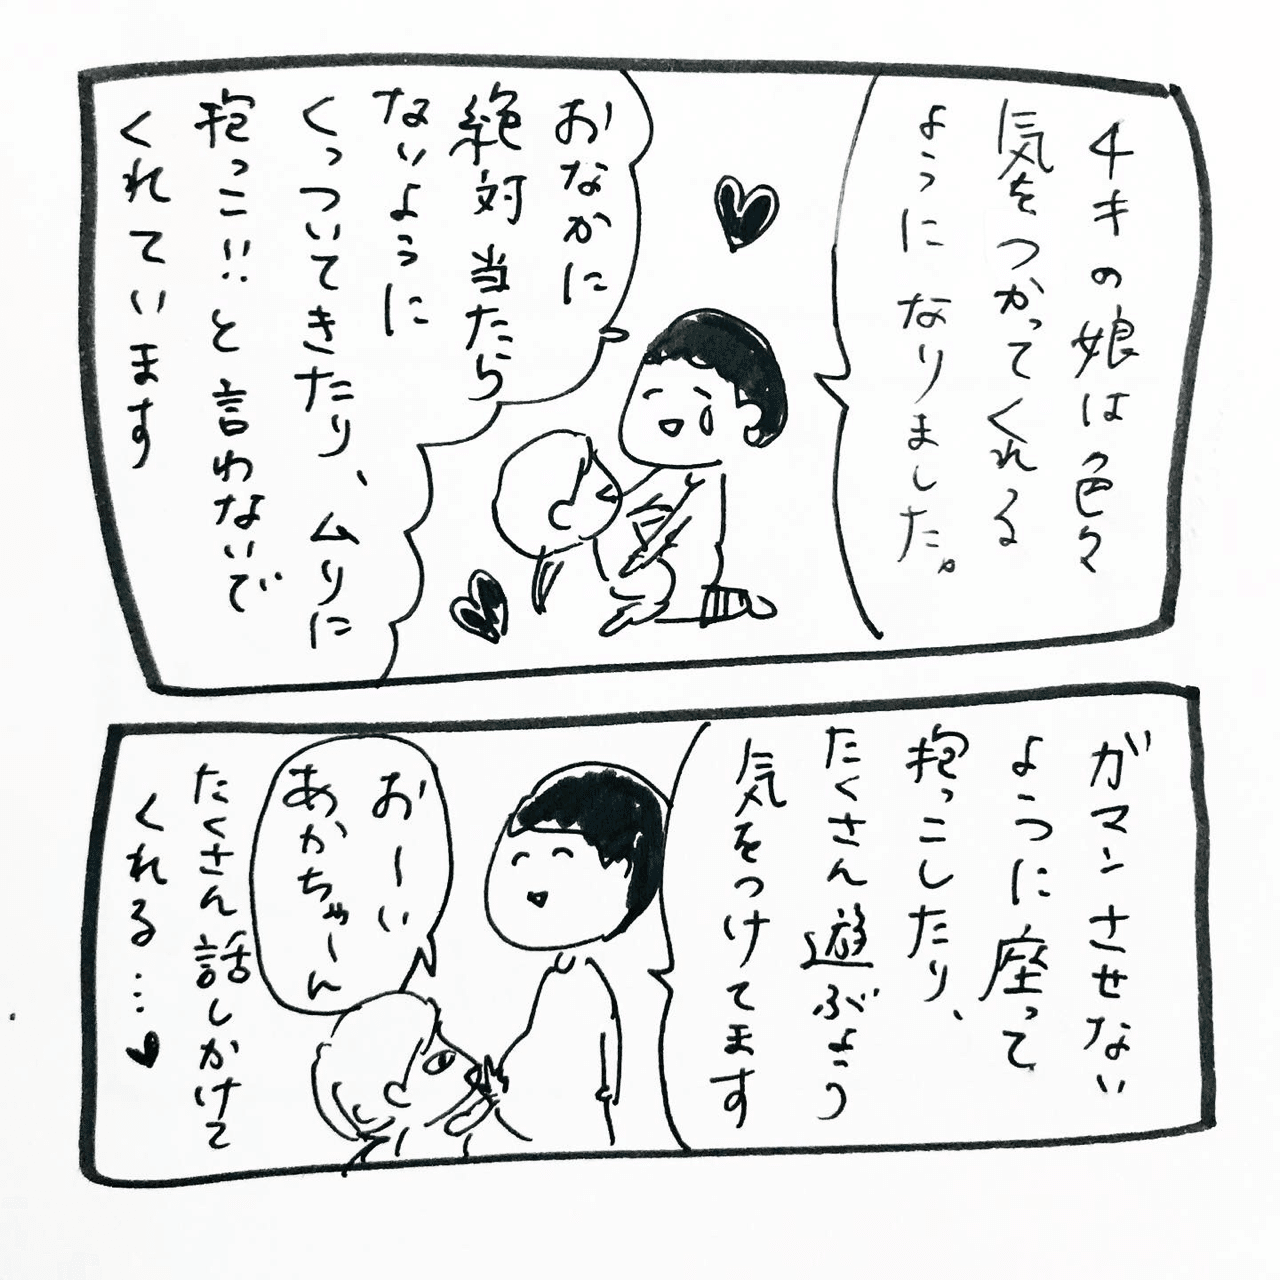 4才の娘は色々
気をつかってくれる
ようになりました。
おなかに
絶対当たら
ないように
くっついてきたり、ムリに
抱っこ!!と言わないで
くれています
ガマンさせない
ように座って
抱っこしたり、
たくさん遊ぶよう
気をつけてます
おーい
あかちゃーん
たくさん話しかけて
くれる…♥